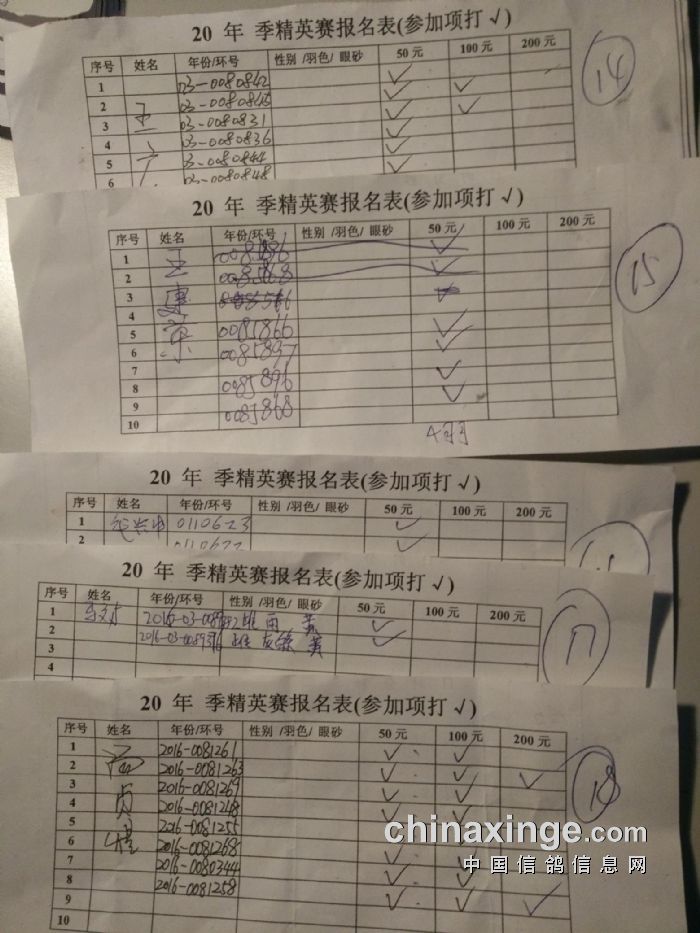 20 年 季精英赛报名表(参加项打 √)
序号 姓名 年份/环号 性别 /羽色/ 眼砂 50 元 100 元 200 元
1 03-0080842 √
2 03-0080845 √ √
3 王 03-0080831 √ √
4 03-0080836 √
5 03-0080844 √
6 03-0080848 √
14
20 年 季精英赛报名表(参加项打 √)
序号 姓名 年份/环号 性别 /羽色/ 眼砂 50 元 100 元 200 元
1 王 √
2 √
3
4
5 0085866 √
6 0085897 √
7
8 0085896 √
9 0085868 √
10
15
20 年 季精英赛报名表(参加项打 √)
序号 姓名 年份/环号 性别 /羽色/ 眼砂 50 元 100 元 200 元
1 0110623 √
2 0110622 √
20 年 季精英赛报名表(参加项打 √)
序号 姓名 年份/环号 性别 /羽色/ 眼砂 50 元 100 元 200 元
1 2016-03- 雨 黄 √
2 2016-03- 黄 √
3
17
20 年 季精英赛报名表(参加项打 √)
序号 姓名 年份/环号 性别 /羽色/ 眼砂 50 元 100 元 200 元
1 2016-0081261 √ √
2 2016-0081263 √ √ √
3 2016-0081269 √ √
4 贞 2016-0081248 √ √
5 2016-0081255 √ √
6 2016-0081268 √ √
7 2016-0080344 √ √
8 2016-0081258 √ √ √
9
10
18
chinaxinge.com
中国信鸽信息网